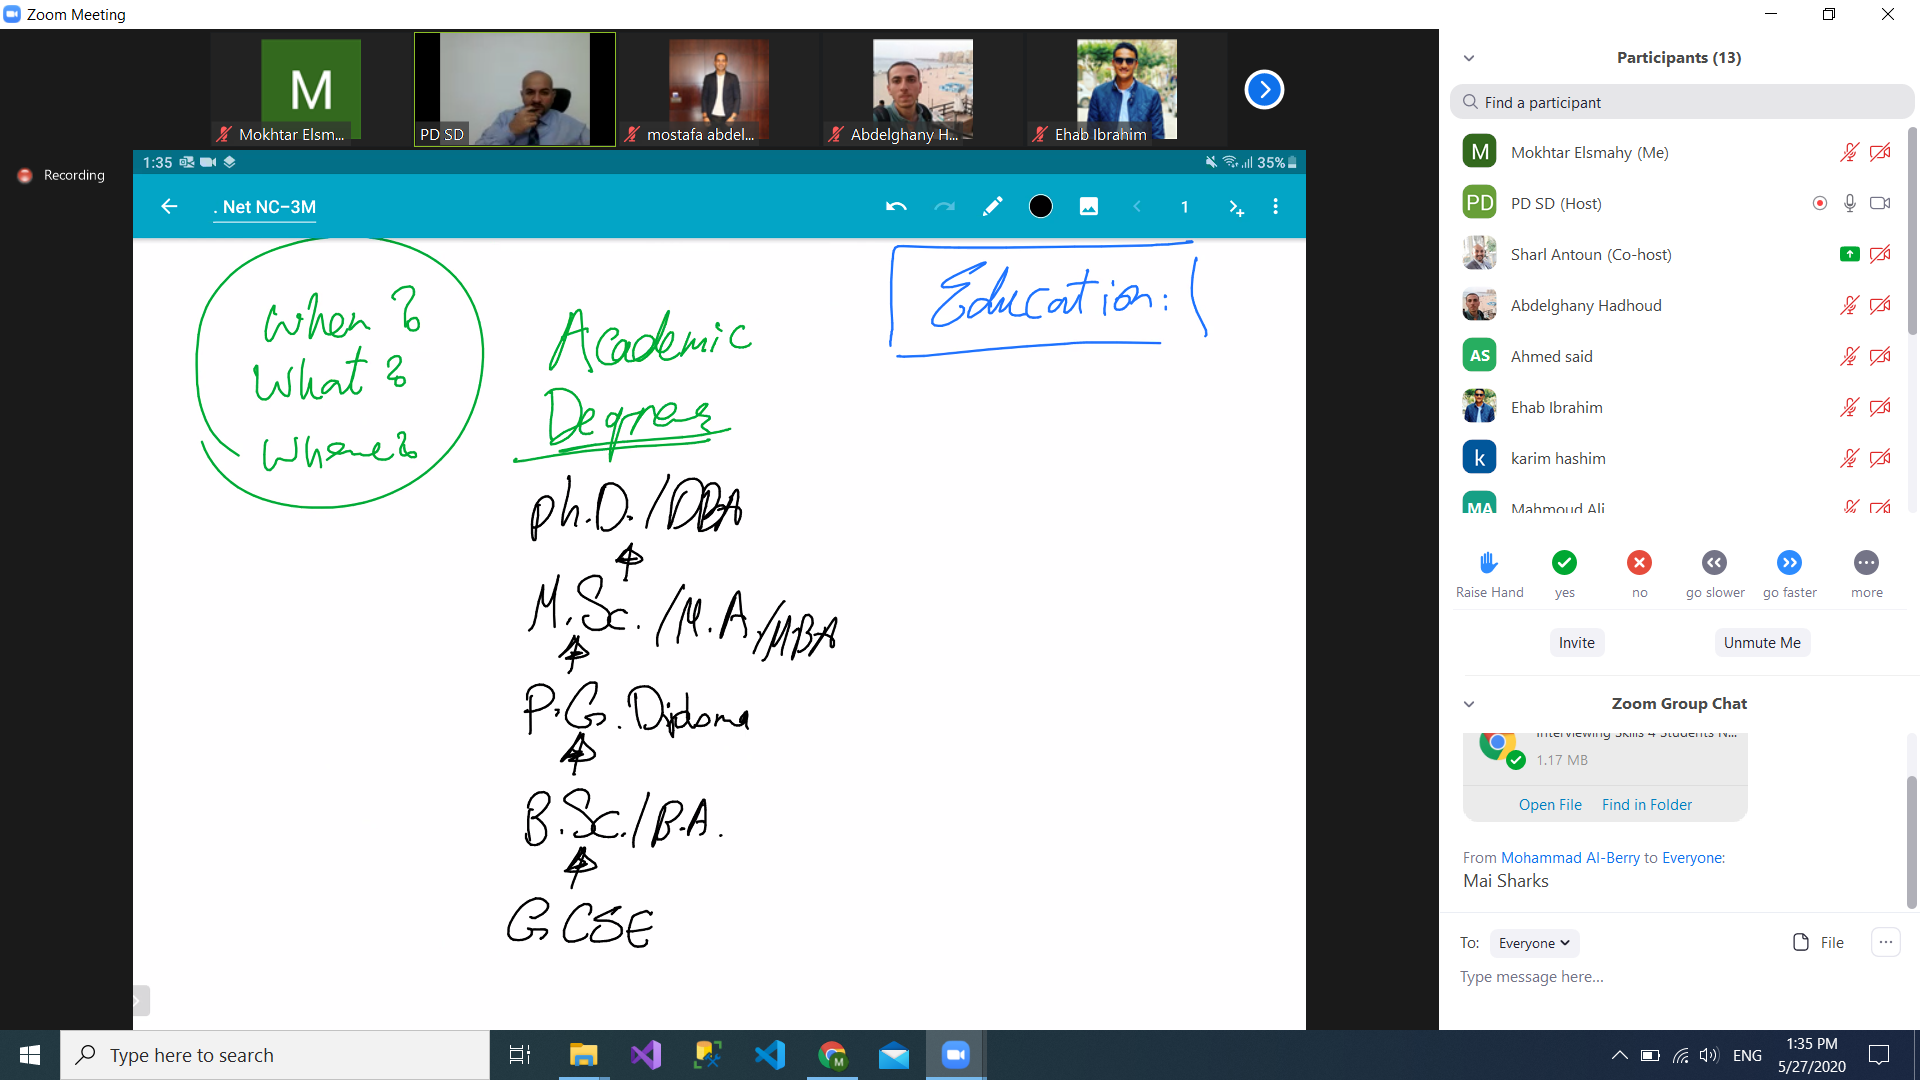 Zoom Meeting
M
Mokhtar Elsm...
PD SD
mostafa abdel...
Abdelghany H...
Ehab Ibrahim
Recording
1:35
35%
. Net NC-3M
1
When?
What?
Where?
Academic
Degrees
Education: (
ph.D. / DBA
M.Sc. / M.A. / MBA
P.G. Diploma
B.Sc. / B.A.
GCSE
Participants (13)
Find a participant
M Mokhtar Elsmahy (Me)
PD PD SD (Host)
Sharl Antoun (Co-host)
Abdelghany Hadhoud
AS Ahmed said
Ehab Ibrahim
k karim hashim
MA Mahmoud Ali
Raise Hand yes no go slower go faster more
Invite Unmute Me
Zoom Group Chat
Interviewing Skills 4 Students N...
1.17 MB
Open File Find in Folder
From Mohammad Al-Berry to Everyone:
Mai Sharks
To: Everyone File
Type message here...
Type here to search
M
ENG
1:35 PM
5/27/2020